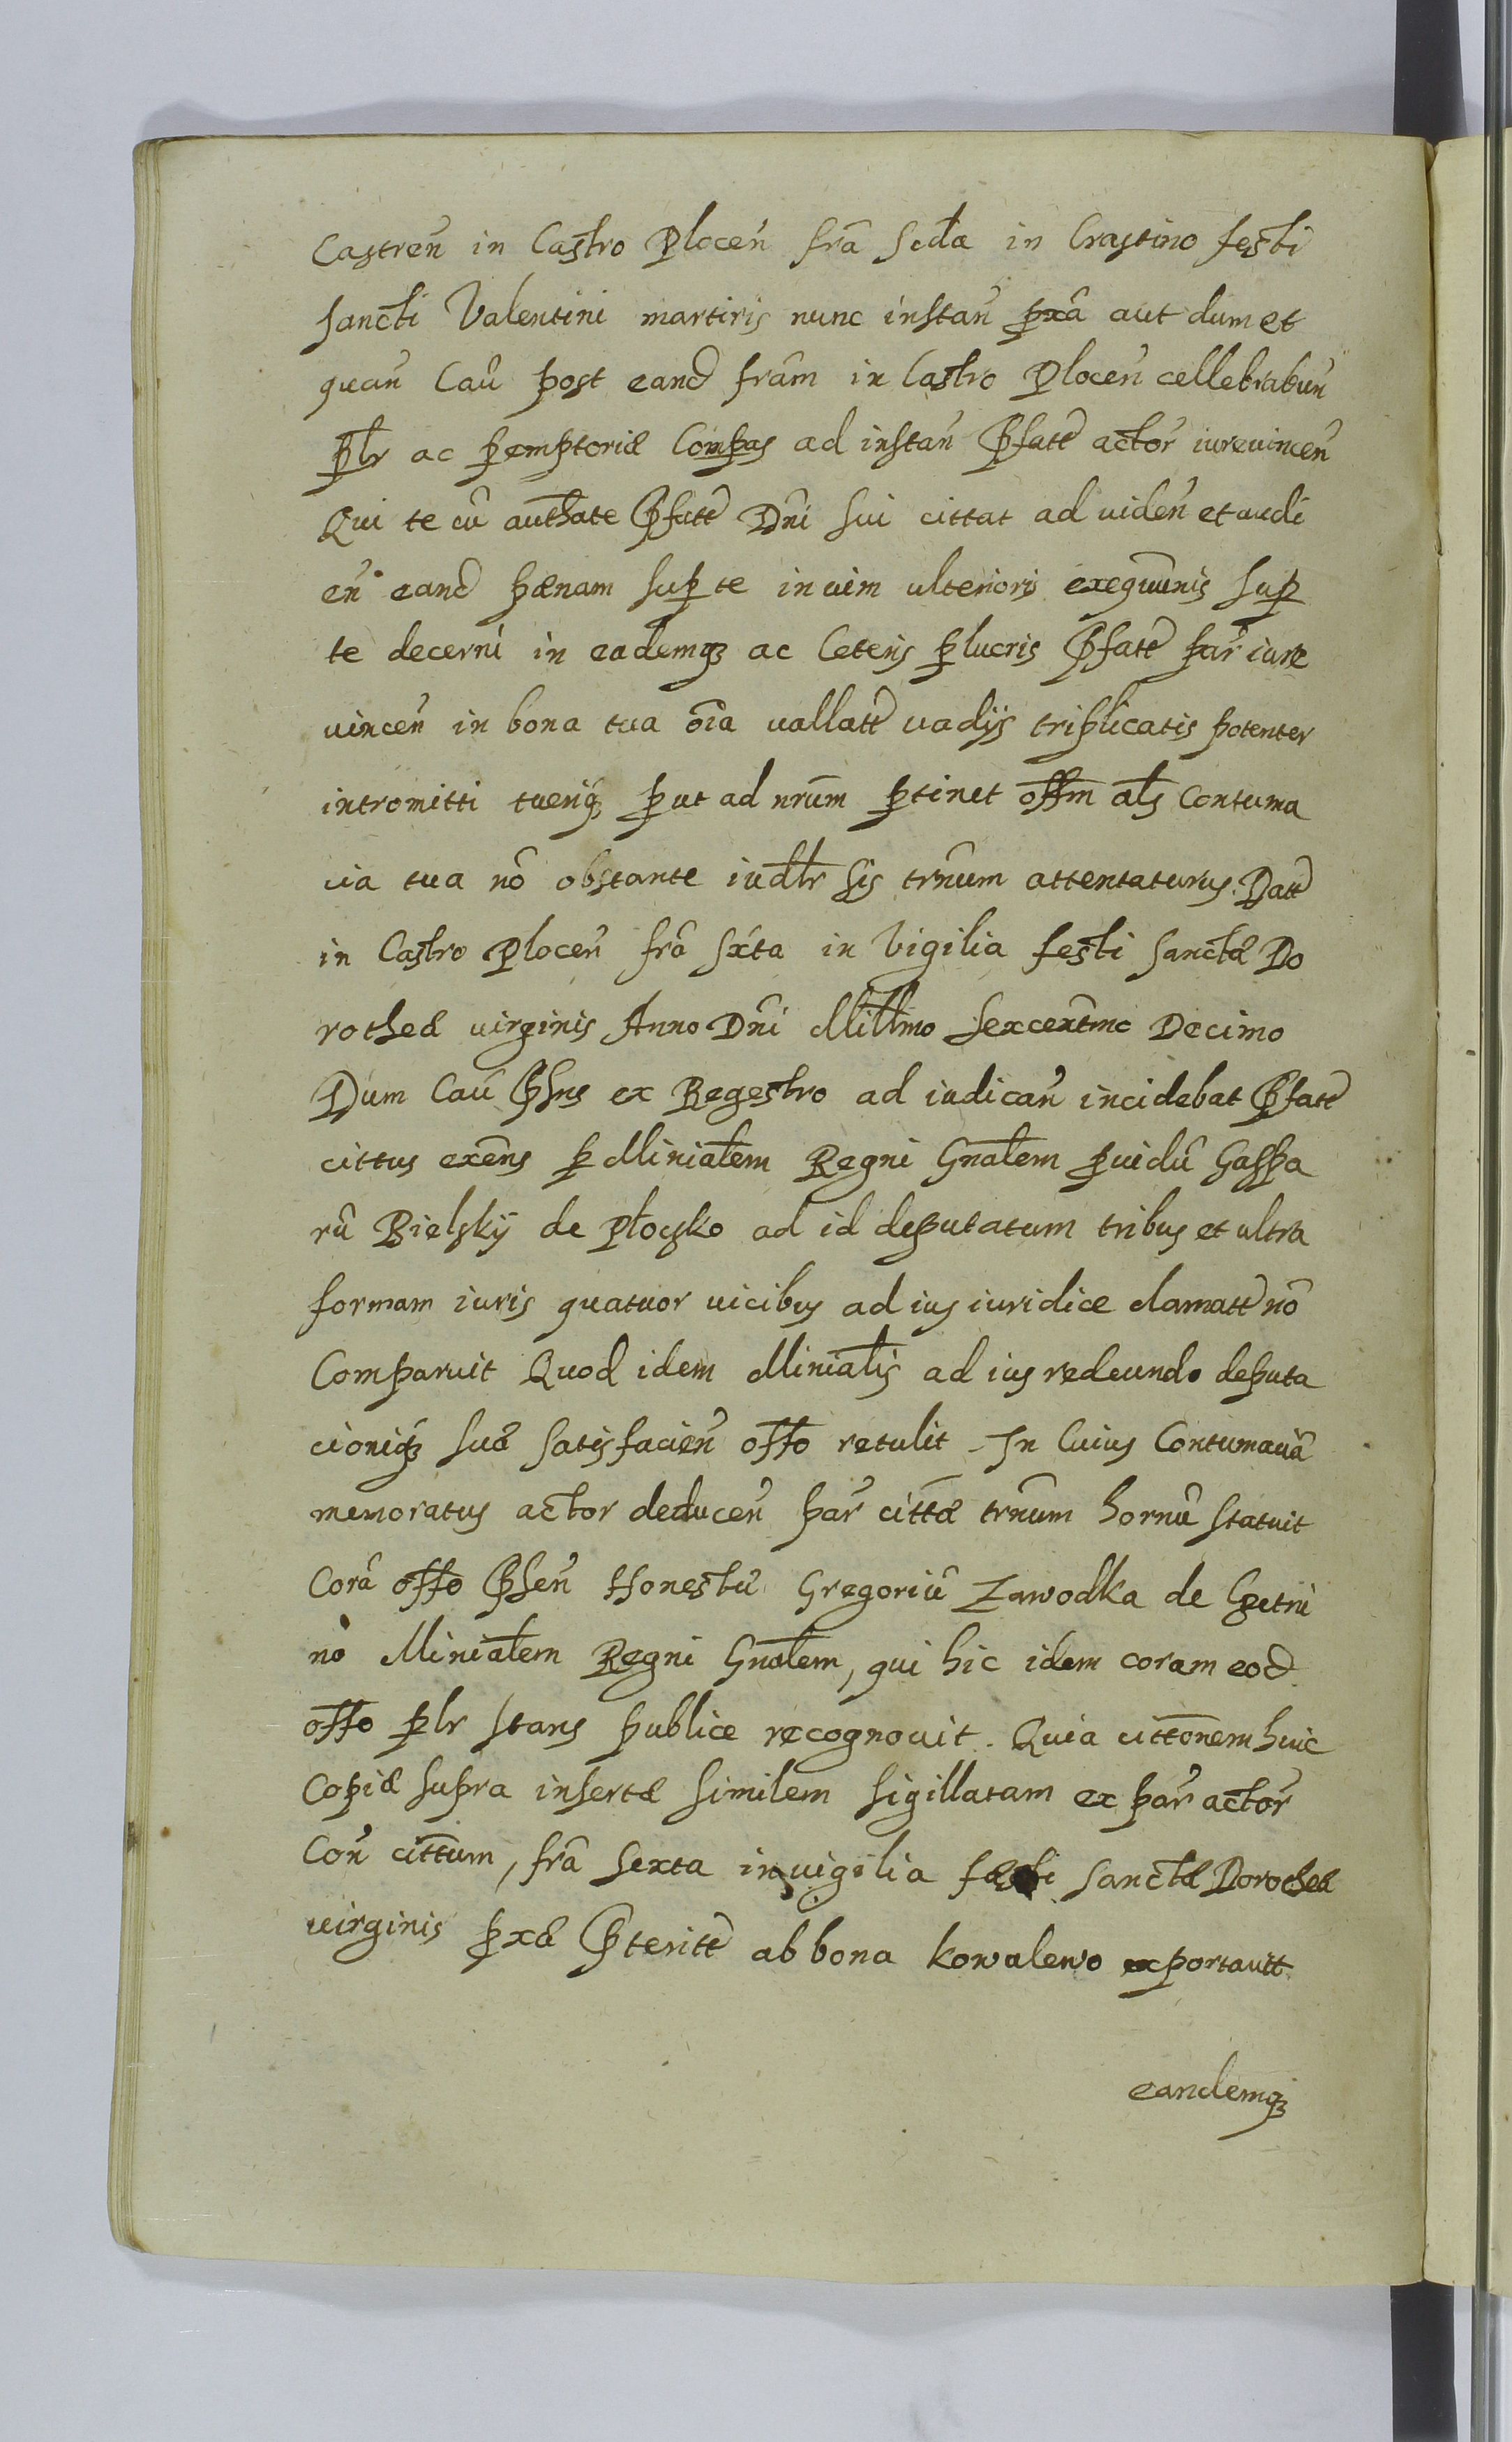 Castreñ in Castro Ploceñ frâ scda in Crastino festi
sancti Valentini martiris nunc instañ pxâ aut dum et
quañ Cau post eand frâm in Castro Ploceñ cellebrabuñ
plr ac pemptoriæ Compas ad instañ Pfatt actor iureuinceñ
Qui te cû authate Pfatt Dñi sui cittat ad uideñ et audi
eñ eand pænam sup te in uim ulterioris exequnis sup
te decerni in eademq ac Ceteris plucris Pfatt par iure
vinceñ in bona tua oîa vallatt vadijs triplicatis potenter
intromitti tueriq put ad nrum ptinet offm als Contuma
cia tua nô obstante iudlr sis trnum attentaturus. Datt
in Castro Ploceñ frâ sxta in Vigilia festi sanctæ Do
rotheæ virginis Anno Dñi Millmo sexcentmo Decimo
Dum Cau Psns ex Regestro ad iudicañ incidebat Pfatt
cittus exens p Minialem Regni Gnalem puidû Gaspa
rû Bielskij de Płocsko ad id deputatum tribus et ultra
formam iuris quatuor vicibus ad ius iuridice clamatt nô
Comparuit Quod idem Minialis ad ius redeundo deputa
cioniq suæ satisfacieñ offo retulit. In Cuius Contumaciâ
memoratus actor deduceñ par cittæ trnum hornû statuit
Corâ offo Pseñ Honestû Gregoriû Zawodka de Cetrii
no Minialem Regni Gnalem, qui hic idem coram eod.
offo plr stans publice recognouit. Quia cittonem huic
Copiæ supra insertæ similem sigillatam ex par actor
Coñ cittum, frâ sexta in vigilia festi sanctæ Dorotheæ
virginis pxæ Pteritt ab bona Kowalewo exportauit
eandemq